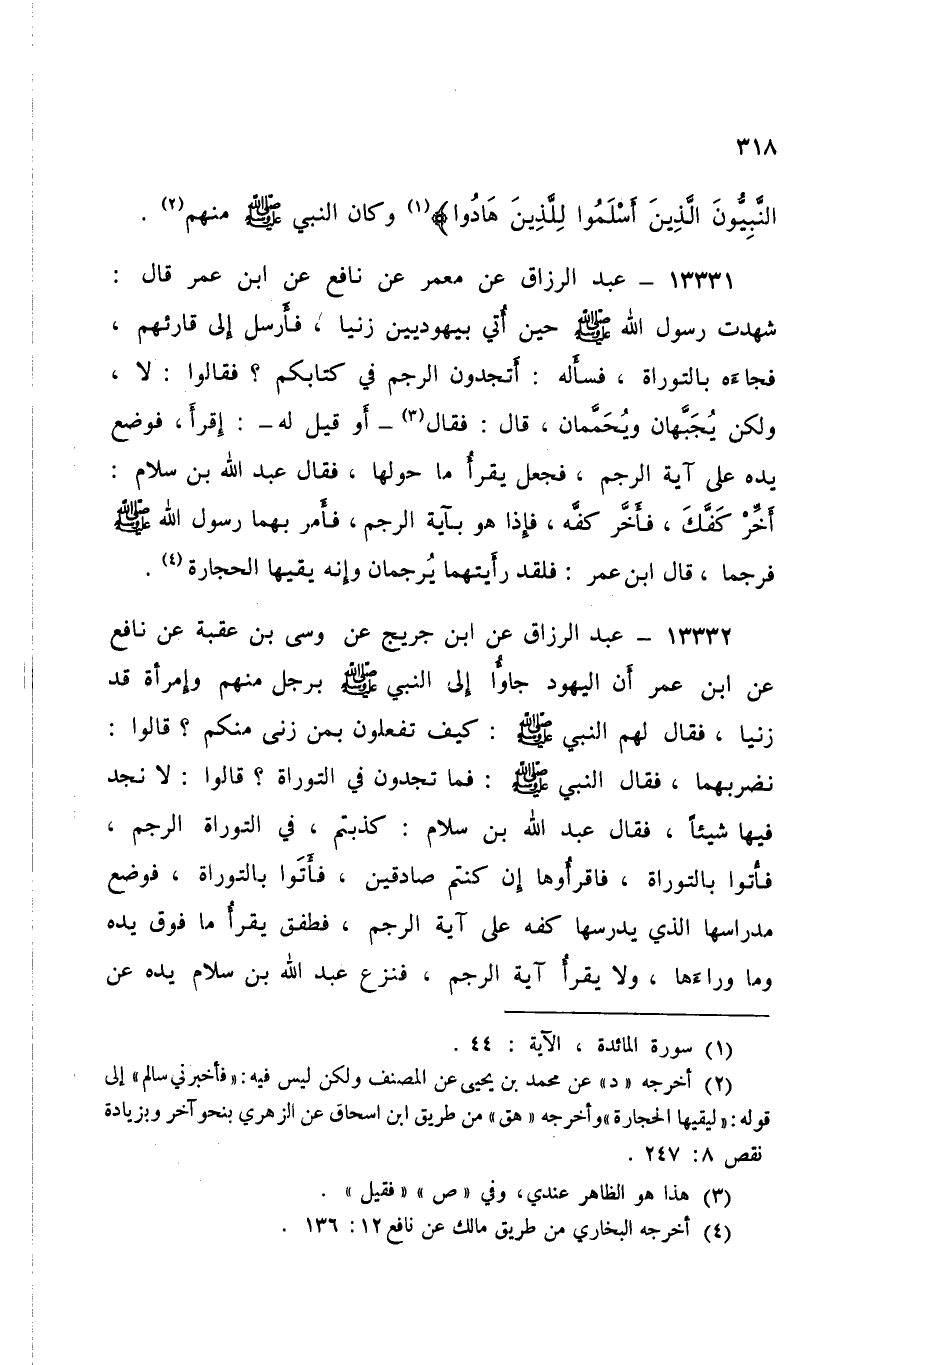 ٣١٨
النَّبِيُّونَ الَّذِينَ أَسْلَمُوا لِلَّذِينَ هَادُوا﴾(١) وكان النبي ﷺ منهم(٢) .
١٣٣٣١ – عبد الرزاق عن معمر عن نافع عن ابن عمر قال :
شهدت رسول الله ﷺ حين أُتي بيهوديين زنيا ، فأرسل إلى قارئهم ،
فجاءه بالتوراة ، فسأله : أتجدون الرجم في كتابكم ؟ فقالوا : لا ،
ولكن يُجَبَّهان ويُحَمَّمان ، قال : فقال(٣) – أو قيل له – : إقرأ ، فوضع
يده على آية الرجم ، فجعل يقرأُ ما حولها ، فقال عبد الله بن سلام :
أَخِّرْ كَفَّكَ ، فأَخَّر كفَّه ، فإذا هو بآية الرجم ، فأمر بهما رسول الله ﷺ
فرجما ، قال ابن عمر : فلقد رأيتهما يُرجمان وإنه يقيها الحجارة(٤) .
١٣٣٣٢ – عبد الرزاق عن ابن جريج عن وسى بن عقبة عن نافع
عن ابن عمر أن اليهود جاوُّا إلى النبي ﷺ برجل منهم وإمرأة قد
زنيا ، فقال لهم النبي ﷺ : كيف تفعلون بمن زنى منكم ؟ قالوا :
نضربهما ، فقال النبي ﷺ : فما تجدون في التوراة ؟ قالوا : لا نجد
فيها شيئاً ، فقال عبد الله بن سلام : كذبتم ، في التوراة الرجم ،
فأتوا بالتوراة ، فاقرأُوها إن كنتم صادقين ، فأَتَوا بالتوراة ، فوضع
مدراسها الذي يدرسها كفه على آية الرجم ، فطفق يقرأُ ما فوق يده
وما وراءها ، ولا يقرأُ آية الرجم ، فنزع عبد الله بن سلام يده عن
(١) سورة المائدة ، الآية : ٤٤ .
(٢) أخرجه «د» عن محمد بن يحيى عن المصنف ولكن ليس فيه : «فأخبرني سالم» إلى
قوله : «ليقيها الحجارة» وأخرجه «هق» من طريق ابن اسحاق عن الزهري بنحو آخر وبزيادة
نقص ٨ : ٢٤٧ .
(٣) هذا هو الظاهر عندي، وفي «ص» «فقيل» .
(٤) أخرجه البخاري من طريق مالك عن نافع ١٢ : ١٣٦ .